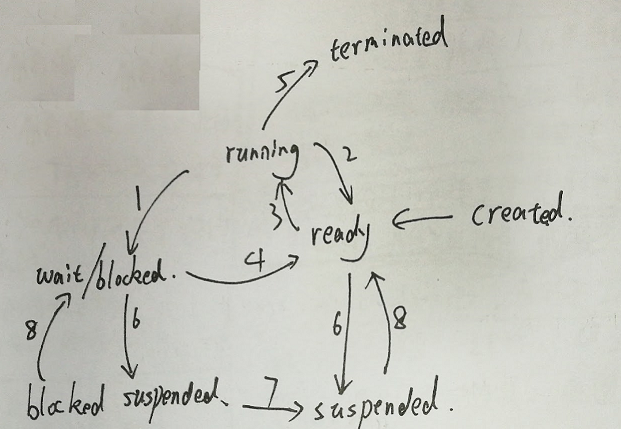 terminated
5
running
2
1
3
created.
ready
4
wait/blocked.
6
6
8
8
blocked suspended.
7
suspended.